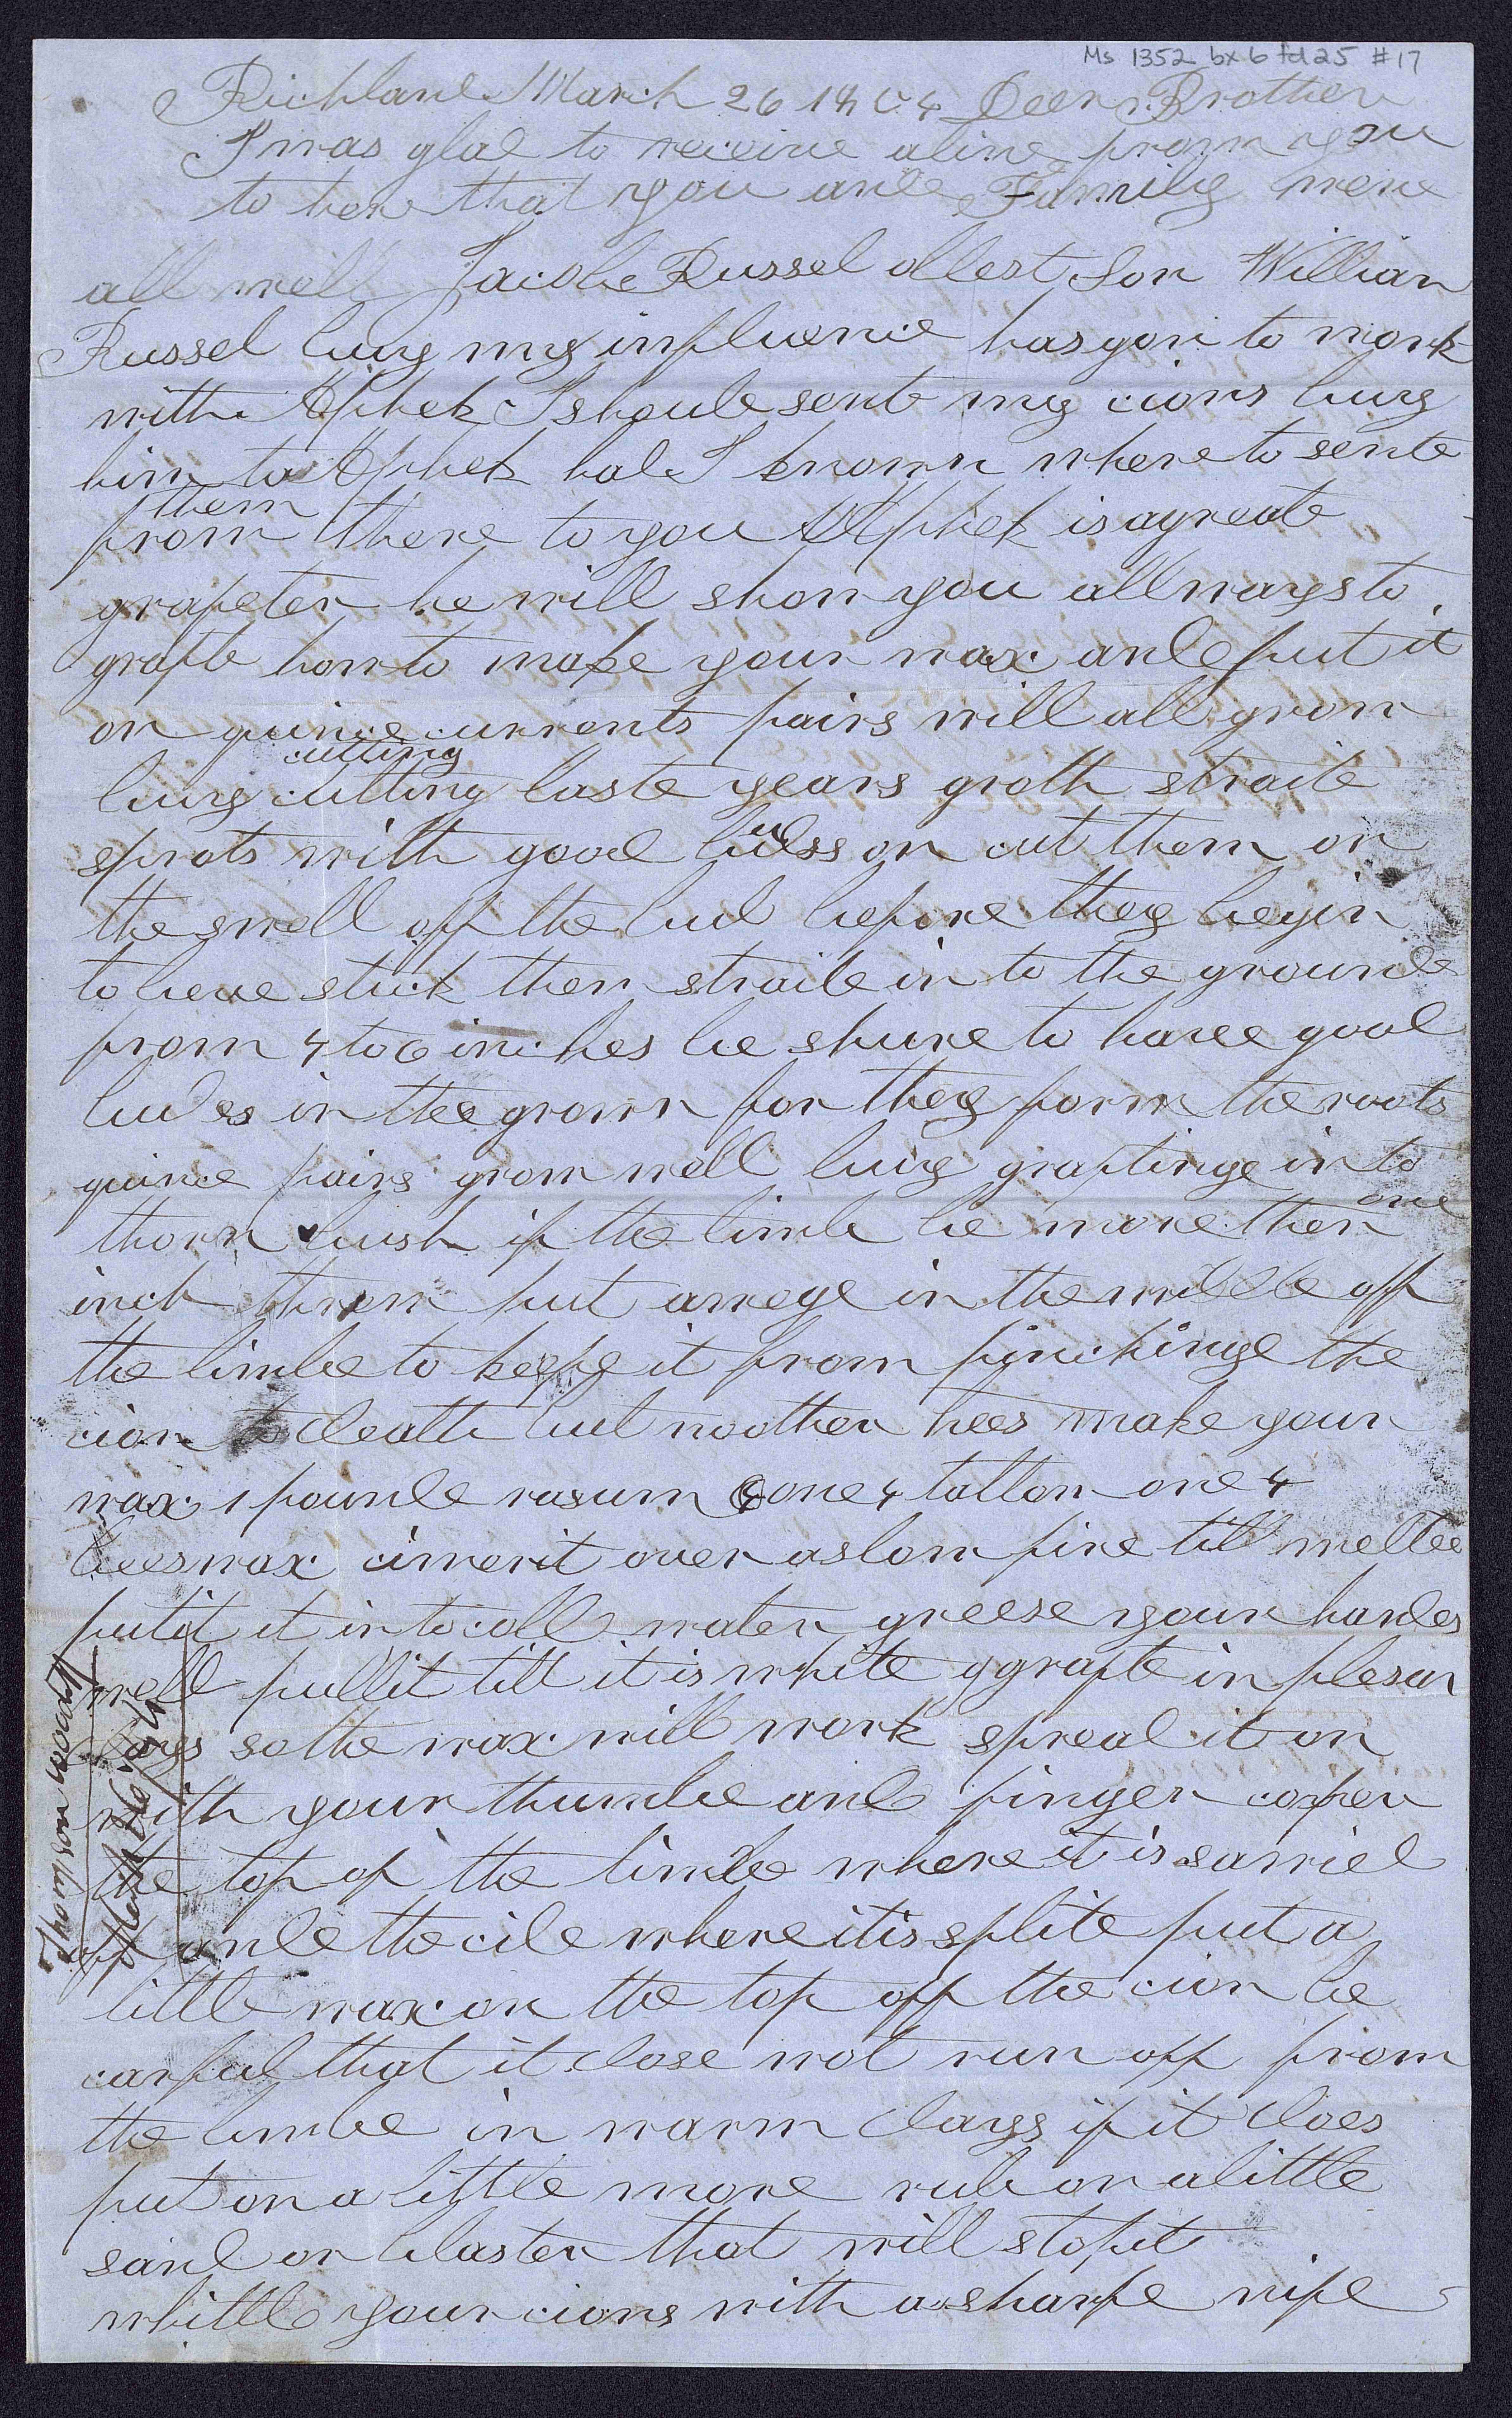 Ms 1352 bx 6 fd 25 #17
Richland March 26 1864 Deer Brother
I was glad to receive a line from you
to here that you and Family were
all well Jacobe Russel oldest Son William
Russel buy my influence has gon to work
with I should sent my cions buy
him to had I known where to sente
them
from there to you is a greate
grafeter he will show you all ways to
grafte how to make your wax and put it
on quince currents pairs will all grow
cutting
buy cutting laste years groth straite
sprots with good buds on cut them on
the swell off the bud before they begin
to leve stick then straite in to the grounde
from 4 to 6 inches be shure to have good
budes in the grown for they form the roots
quince pairs grow well buy graftinge in to
thorn bush if the limb be more then one
inch throw put a wege in the middle off
the limbe to keepe it from pinchinge the
cion to death but no other hees make your
wax 1 pounde rosum one 4 tallow one 4
beeswax cimerit over a slow fire till melted
put it in to cold water greese your handes
well pull it till it is white grafte in plesan
days so the wax will work spread it on
with your thumbe and finger cover
the top of the limbe where it is sawied
off and the cide where it is splite put a
little wax on the top off the cion be
carful that it dose not run off from
the limbe in warm days if it does
put on a little more rub on a little
sand or plaster that will stop it
whittle your cions with a sharpe nife
Thompson
March 26